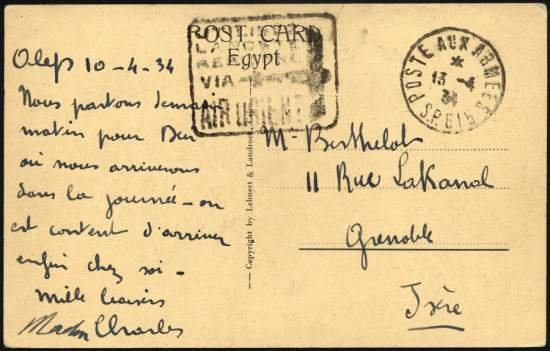 POST CARD
Egypt
VIA
AIR ORIENT
POSTE AUX ARMEES
13 - 4
34
S.P. 615
Alep 10-4-34
Nous partons demain
matin pour
où nous arriverons
dans la journée - on
est content d'arriver
enfin chez soi -
Mille baisers
Charles
Copyright by Lehnert & Landrock
Mr Berthelot
11 Rue Lakanal
Grenoble
Isère